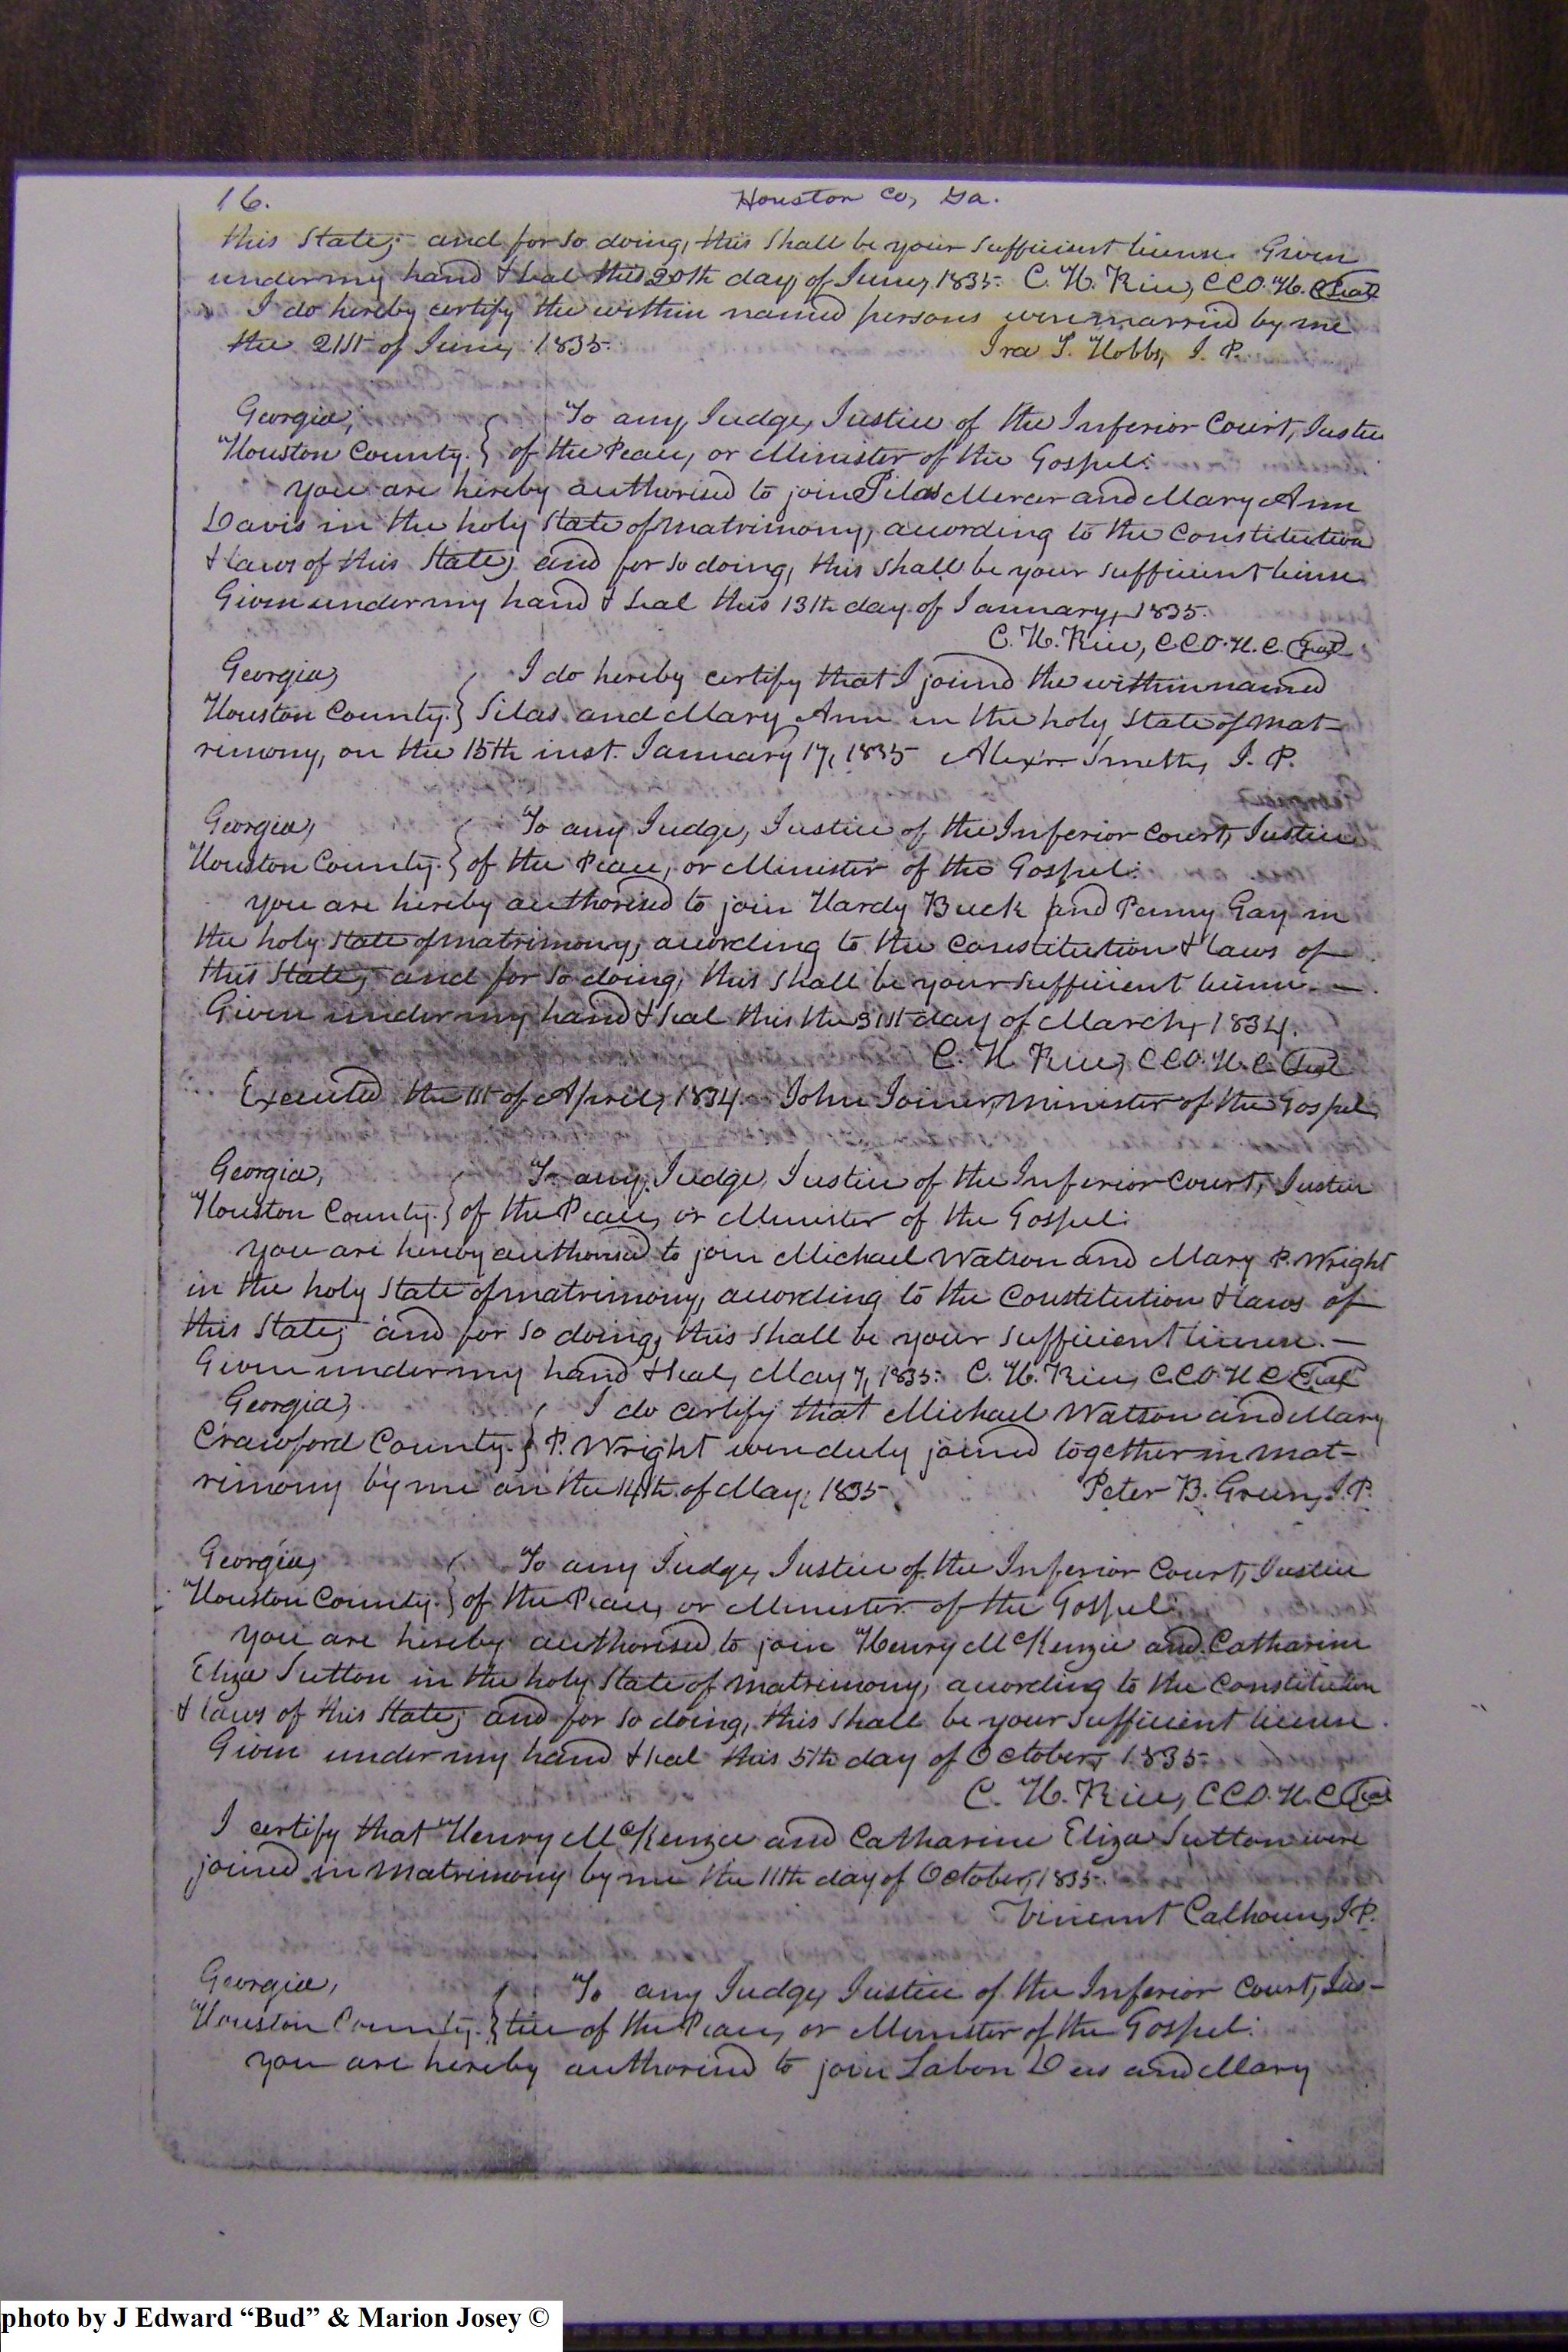 16.
Houston Co, Ga.
this State; and for so doing, this shall be your sufficient license. Given
under my hand & seal this 20th day of June, 1835. C. H. Rice, C C O. H. C Seal
I do hereby certify the within named persons were married by me
the 21st of June, 1835. Ira T. Hobbs, J. P.
Georgia, To any Judge, Justice of the Inferior Court, Justice
Houston County. } of the Peace, or Minister of the Gospel:
You are hereby authorised to join Silas Mercer and Mary Ann
Davis in the holy state of matrimony, according to the Constitution
& laws of this State; and for so doing, this shall be your sufficient license
Given under my hand & seal this 13th day of January, 1835.
C. H. Rice, C.C.O. H. C. Seal
Georgia, I do hereby certify that I joined the within named
Houston County. } Silas and Mary Ann in the holy state of mat-
rimony, on the 15th inst. January 17, 1835 Alexr. Smith, J. P.
Georgia, To any Judge, Justice of the Inferior Court, Justice
Houston County. } of the Peace, or Minister of the Gospel:
You are hereby authorised to join Hardy Buck and Penny Gay in
the holy state of matrimony, according to the Constitution & laws of
this State; and for so doing, this shall be your sufficient license. —
Given under my hand & seal this the 31st day of March, 1834.
C. H. Rice, C C O. H. C. Seal
Executed the 1st of April, 1834. John Joiner, Minister of the Gospel
Georgia, To any Judge, Justice of the Inferior Court, Justice
Houston County. } of the Peace, or Minister of the Gospel:
You are hereby authorised to join Michael Watson and Mary P. Wright
in the holy state of matrimony, according to the Constitution & laws of
this State; and for so doing, this shall be your sufficient license. —
Given under my hand & seal, May 7, 1835. C. H. Rice, C.C.O. H C. Seal
Georgia, I do certify that Michael Watson and Mary
Crawford County. } P. Wright were duly joined together in mat-
rimony by me on the 14th of May, 1835. Peter B. Green, J. P.
Georgia, To any Judge, Justice of the Inferior Court, Justice
Houston County. } of the Peace, or Minister of the Gospel:
You are hereby authorised to join Henry McKenzie and Catharine
Eliza Sutton in the holy state of matrimony, according to the Constitution
& laws of this State; and for so doing, this shall be your sufficient license.
Given under my hand & seal this 5th day of October, 1835.
C. H. Rice, C C O. H. C Seal
I certify that Henry McKenzie and Catharine Eliza Sutton were
joined in matrimony by me the 11th day of October, 1835.
Vincent Calhoun, J. P.
Georgia, To any Judge, Justice of the Inferior Court, Jus-
Houston County. } tice of the Peace, or Minister of the Gospel:
You are hereby authorised to join Labon Dees and Mary
photo by J Edward “Bud” & Marion Josey ©